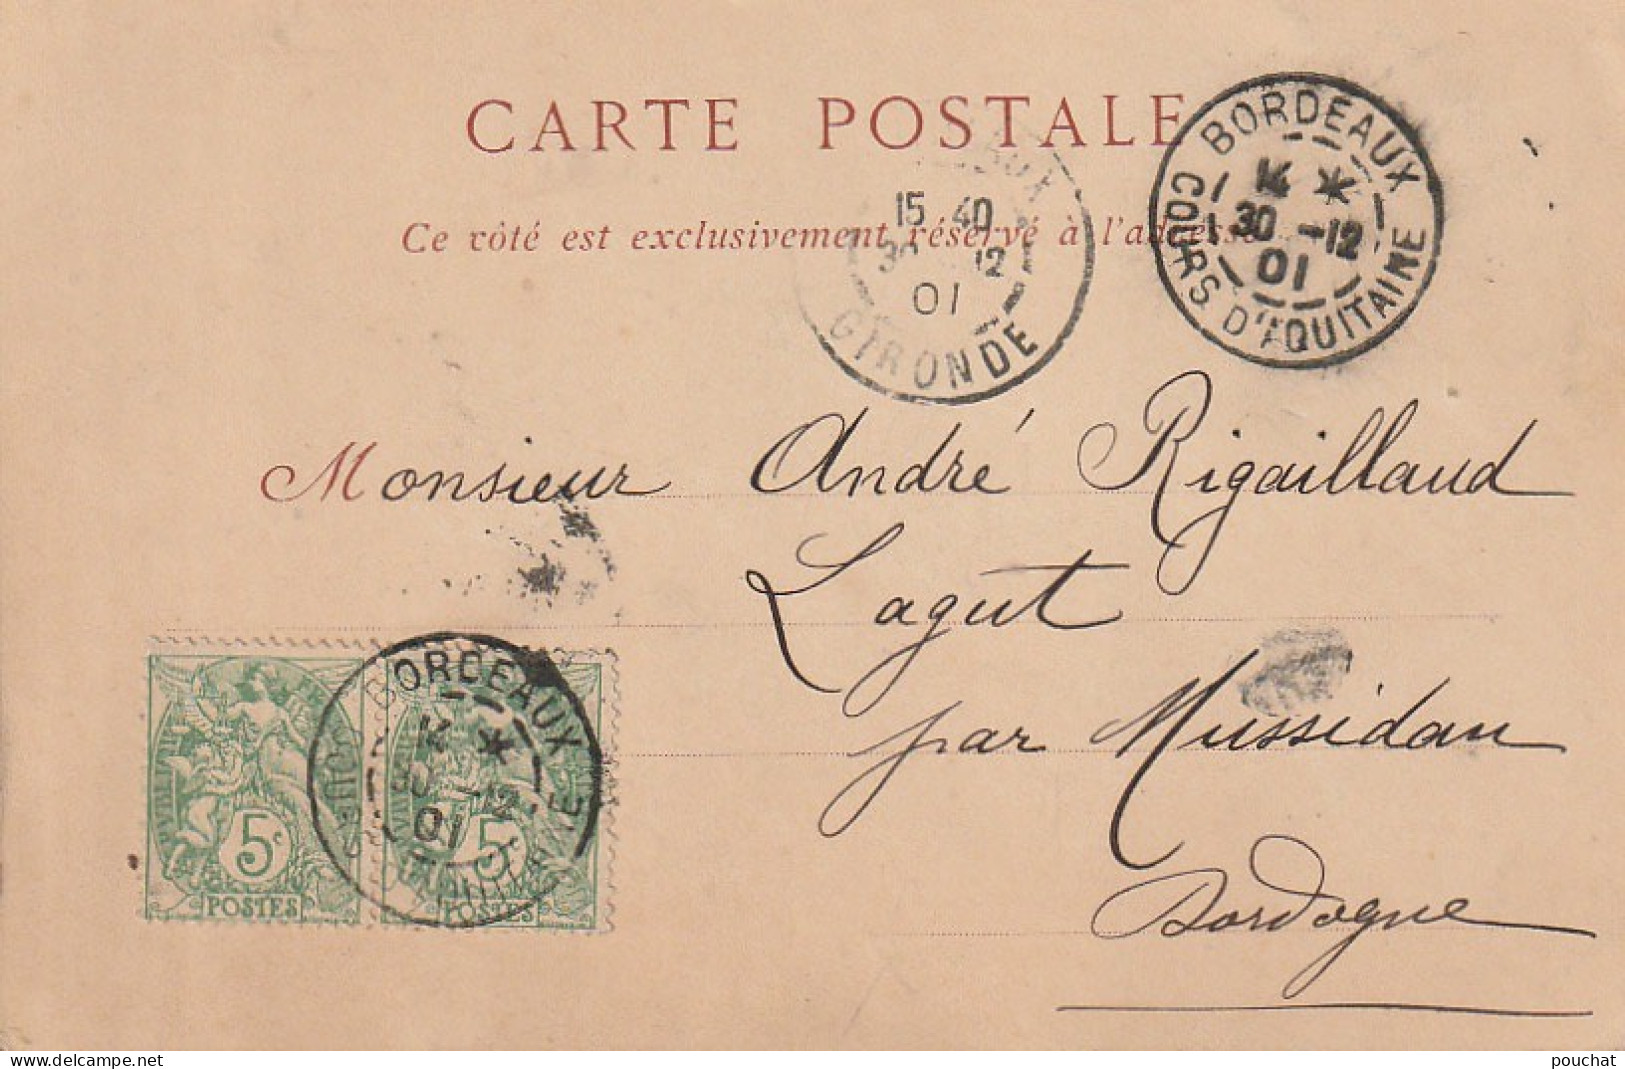 CARTE POSTALE
Ce côté est exclusivement réservé à l'adresse
15 40
30 12
01
GIRONDE
BORDEAUX
14 *
30 -12
01
COURS D'AQUITAINE
Monsieur André Rigaillaud
Lagut
par Mussidan
Dordogne
5c
POSTES
5
POSTES
BORDEAUX
14 *
30 -12
01
www.delcampe.net
pouchat